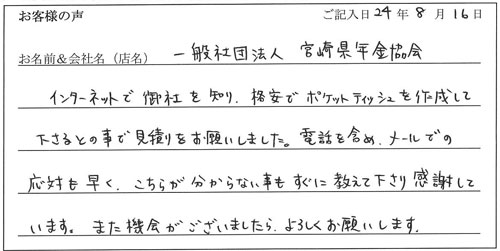 お客様の声 ご記入日 24 年 8 月 16 日
お名前&会社名（店名） 一般社団法人 宮崎県年金協会
インターネットで 御社を知り、格安で ポケットティッシュを作成して
下さるとの事で見積りをお願いしました。電話を含め、メールでの
応対も早く、こちらが分からない事もすぐに教えて下さり感謝して
います。また機会がございましたら、よろしくお願いします。